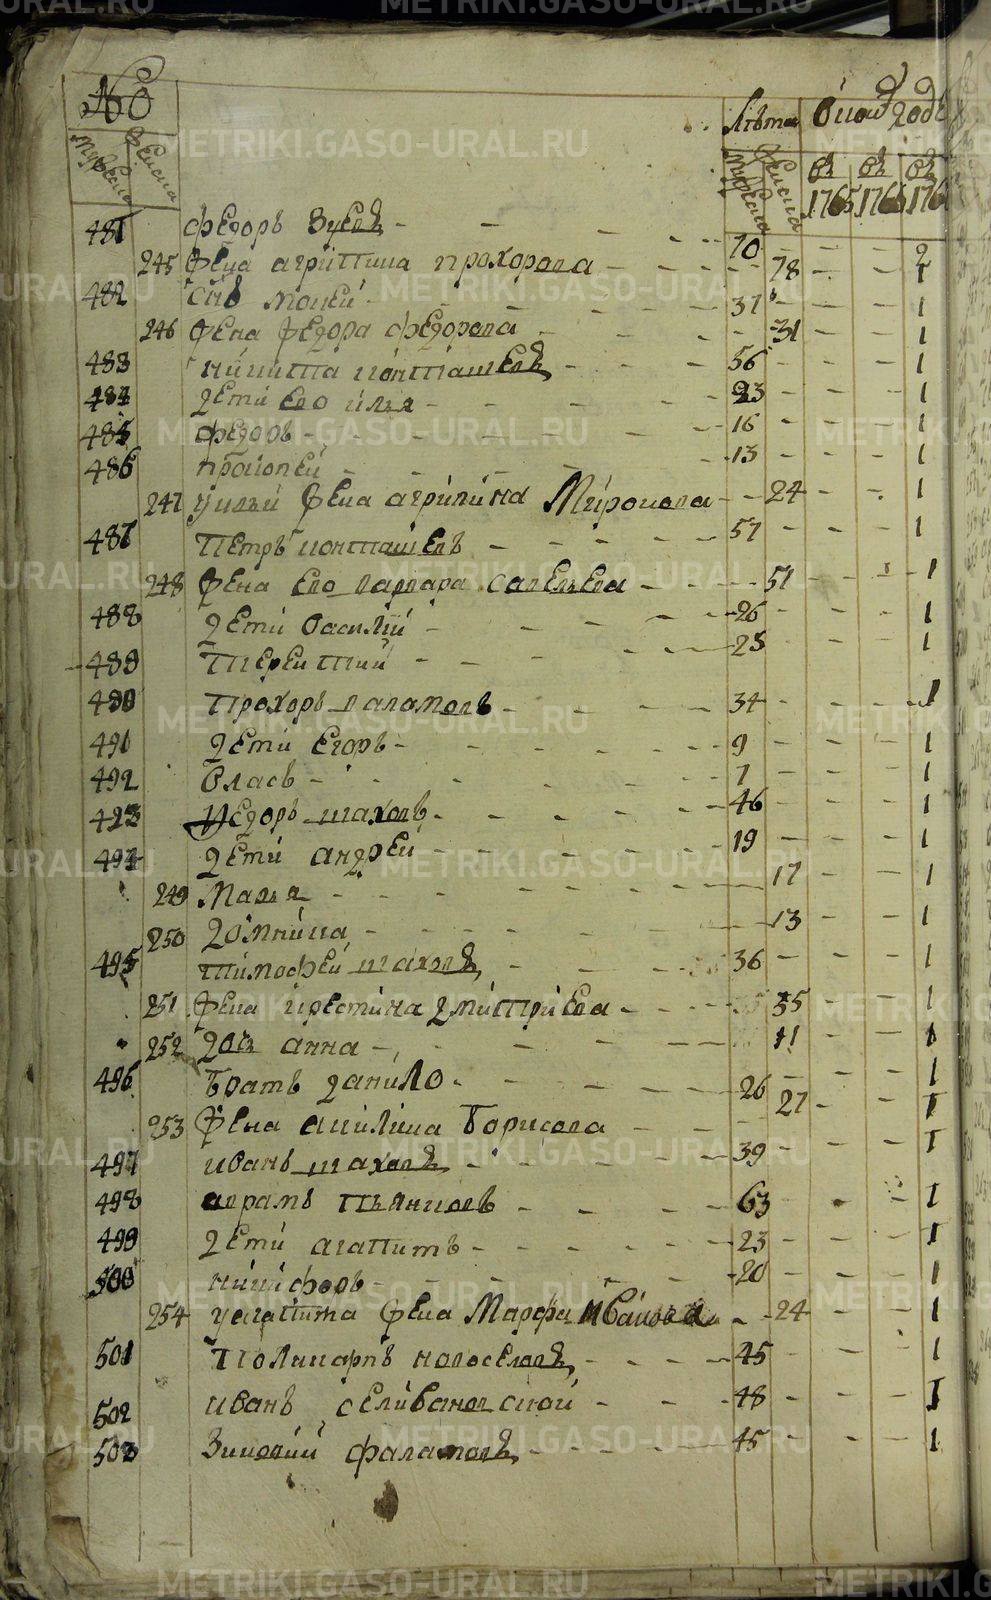 №
мужеска
женска
Лѣта
мужеска
женска
в 1765
в 1766
в 176
481 федоръ Зуевъ - 70 - - 2
245 жена агрипина прохорова - 78 - - 1
482 снъ мокей - 37 - - 1
246 жена федора федорова - 31 - - 1
483 никита конташевъ - 56 - - 1
484 дети ево илья - 23 - - 1
485 федоръ - 16 - - 1
486 прокопей - 13 - - 1
247 уильи жена агрипина Миронова - 24 - - 1
487 петръ конташевъ - 57 - - 1
248 жена ево варвара савельева - 51 - 1
488 дети василий - 26 - - 1
489 терентий - 23 - - 1
490 прохоръ - 34 - - 1
491 дети егоръ - 9 - - 1
492 власъ - 7 - - 1
493 федоръ шаховъ - 46 - - 1
494 дети андрей - 19 - - 1
249 Марья - 17 - - 1
250 домника - 13 - - 1
495 тимофей шаховъ - 36 - - 1
251 жена крестина дмитриева - 35 - - 1
252 дочь анна - 11 - - 1
496 братъ данило - 26 - - 1
253 жена акилина Борисова - 27 - - 1
497 иванъ шаховъ - 39 - - 1
498 аврамъ пьянковъ - 63 - - 1
499 дети агапитъ - 23 - - 1
500 никифоръ - 20 - - 1
254 уагапита жена Марфа иванова - 24 - - 1
501 поликарпъ новоселовъ - 45 - - 1
502 иванъ селивановской - 48 - - 1
503 Зиновий - 45 - - 1
METRIKI.GASO-URAL.RU